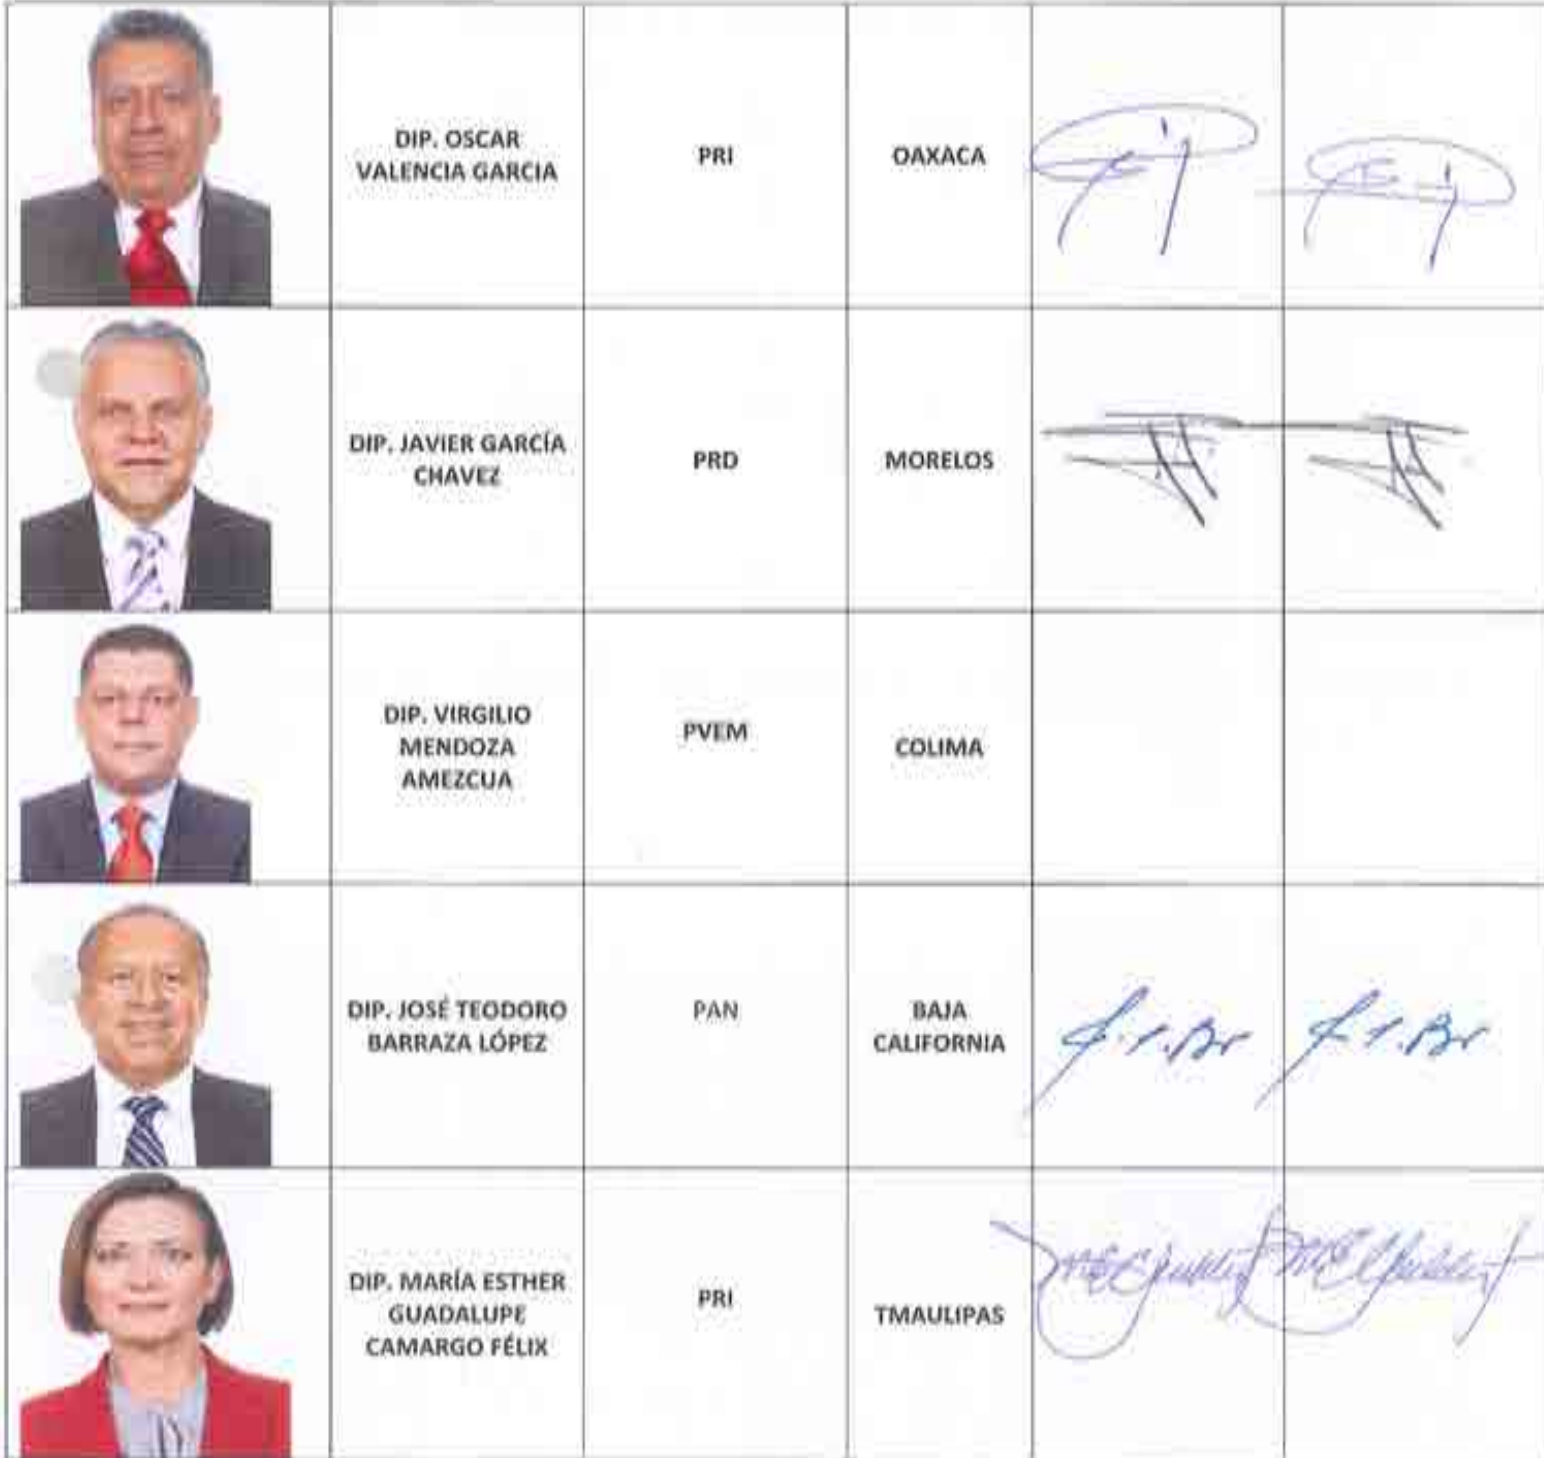 DIP. OSCAR
VALENCIA GARCIA
PRI
OAXACA
DIP. JAVIER GARCÍA
CHAVEZ
PRD
MORELOS
DIP. VIRGILIO
MENDOZA
AMEZCUA
PVEM
COLIMA
DIP. JOSÉ TEODORO
BARRAZA LÓPEZ
PAN
BAJA
CALIFORNIA
DIP. MARÍA ESTHER
GUADALUPE
CAMARGO FÉLIX
PRI
TMAULIPAS